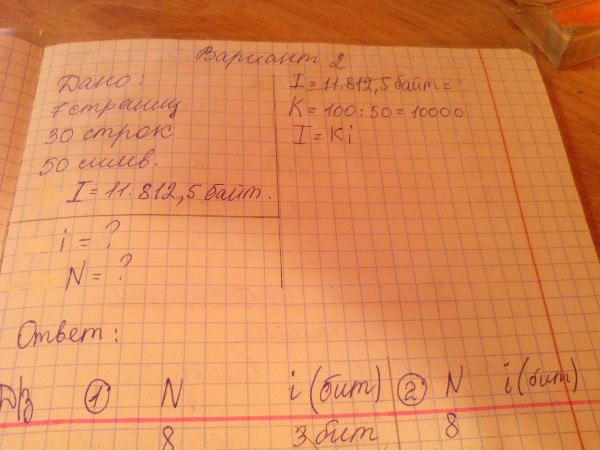 Вариант 2
Дано:
7 страниц
30 строк
50 симв.
I = 11.812,5 байт.
i = ?
N = ?
I = 11.812,5 байт =
K = 100 : 50 = 10000
I = Ki
Ответ:
Д/з ① N i (бит) ② N i (бит)
8 3 бит 8